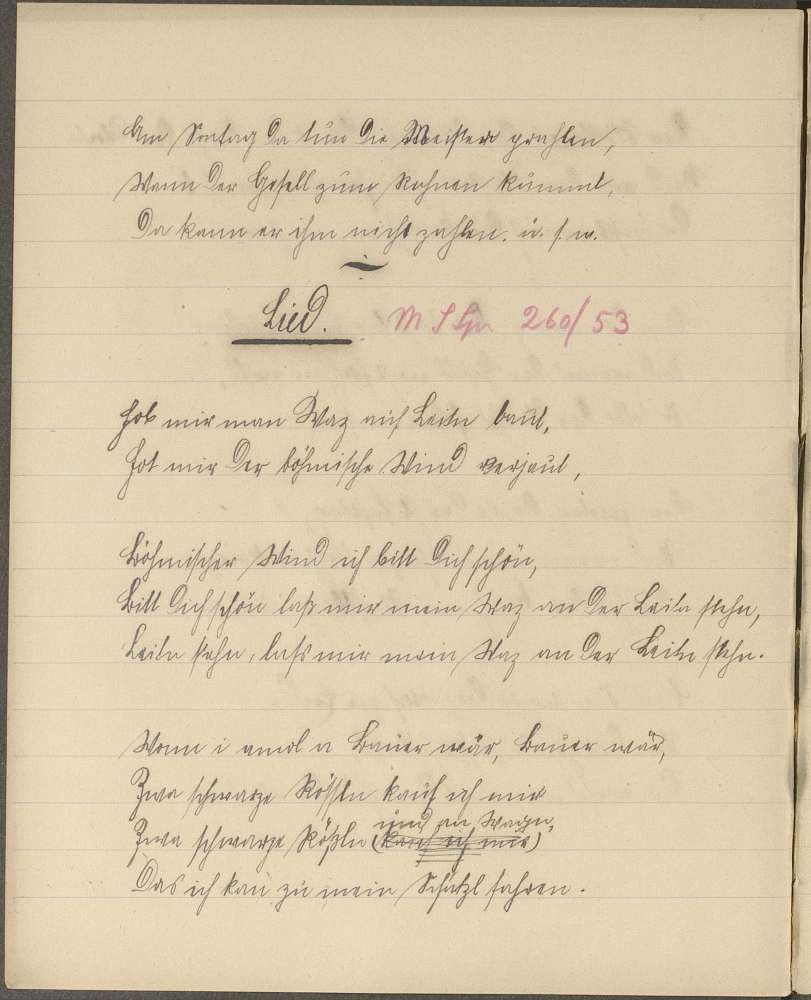 Am Sontag da tun die Meister prahlen,
Wenn der Gesell zum Rechnen kümmt,
Da kann er ihm nicht zahlen. u. s. w.
Lied. M S Spr 260/53
Hob mir man Waz auf Leitn baut,
Hot mir der böhmische Wind verjaut,
Böhmischer Wind ich bitt dich schön,
Bitt dich schön laß mir mein Waz an der Leitn stehn,
Leitn stehn, laß mir mein Waz an der Leitn stehn.
Wonn i amol a Bauer wär, Bauer wär,
Zwa schwarze Rössln kauf ich mir
und an Wagn,
Zwa schwarze Rößln (kauf ich mir)
Das ich kan zu mein Schatzl fahren.